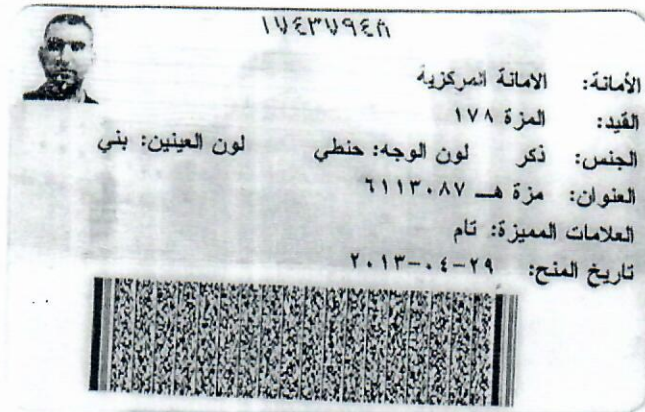 ١٧٤٣٧٩٤٨
الأمانة: الامانة المركزية
القيد: المزة ١٧٨
الجنس: ذكر لون الوجه: حنطي لون العينين: بني
العنوان: مزة هـ ٦١١٣٠٨٧
العلامات المميزة: تام
تاريخ المنح: ٢٩-٠٤-٢٠١٣